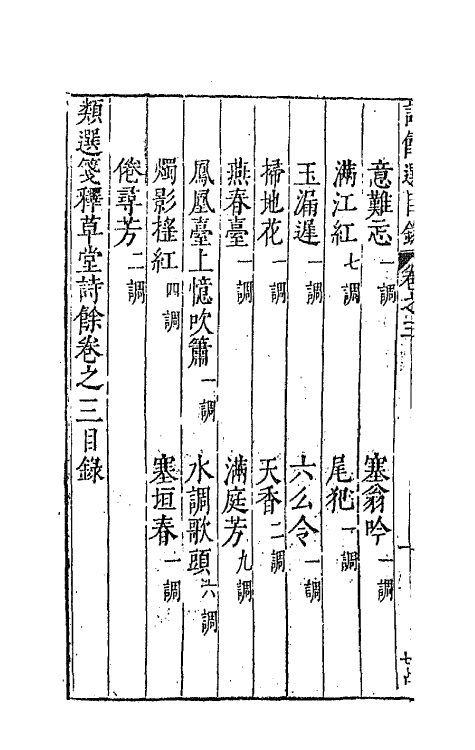 意難忘一調　塞翁吟一調
滿江紅七調　尾犯一調
玉漏遲一調　六么令一調
掃地花一調　天香二調
燕春臺一調　滿庭芳九調
鳳凰臺上憶吹簫一調　水調歌頭六調
燭影搖紅四調　塞垣春一調
倦尋芳二調
類選箋釋草堂詩餘卷之三目錄